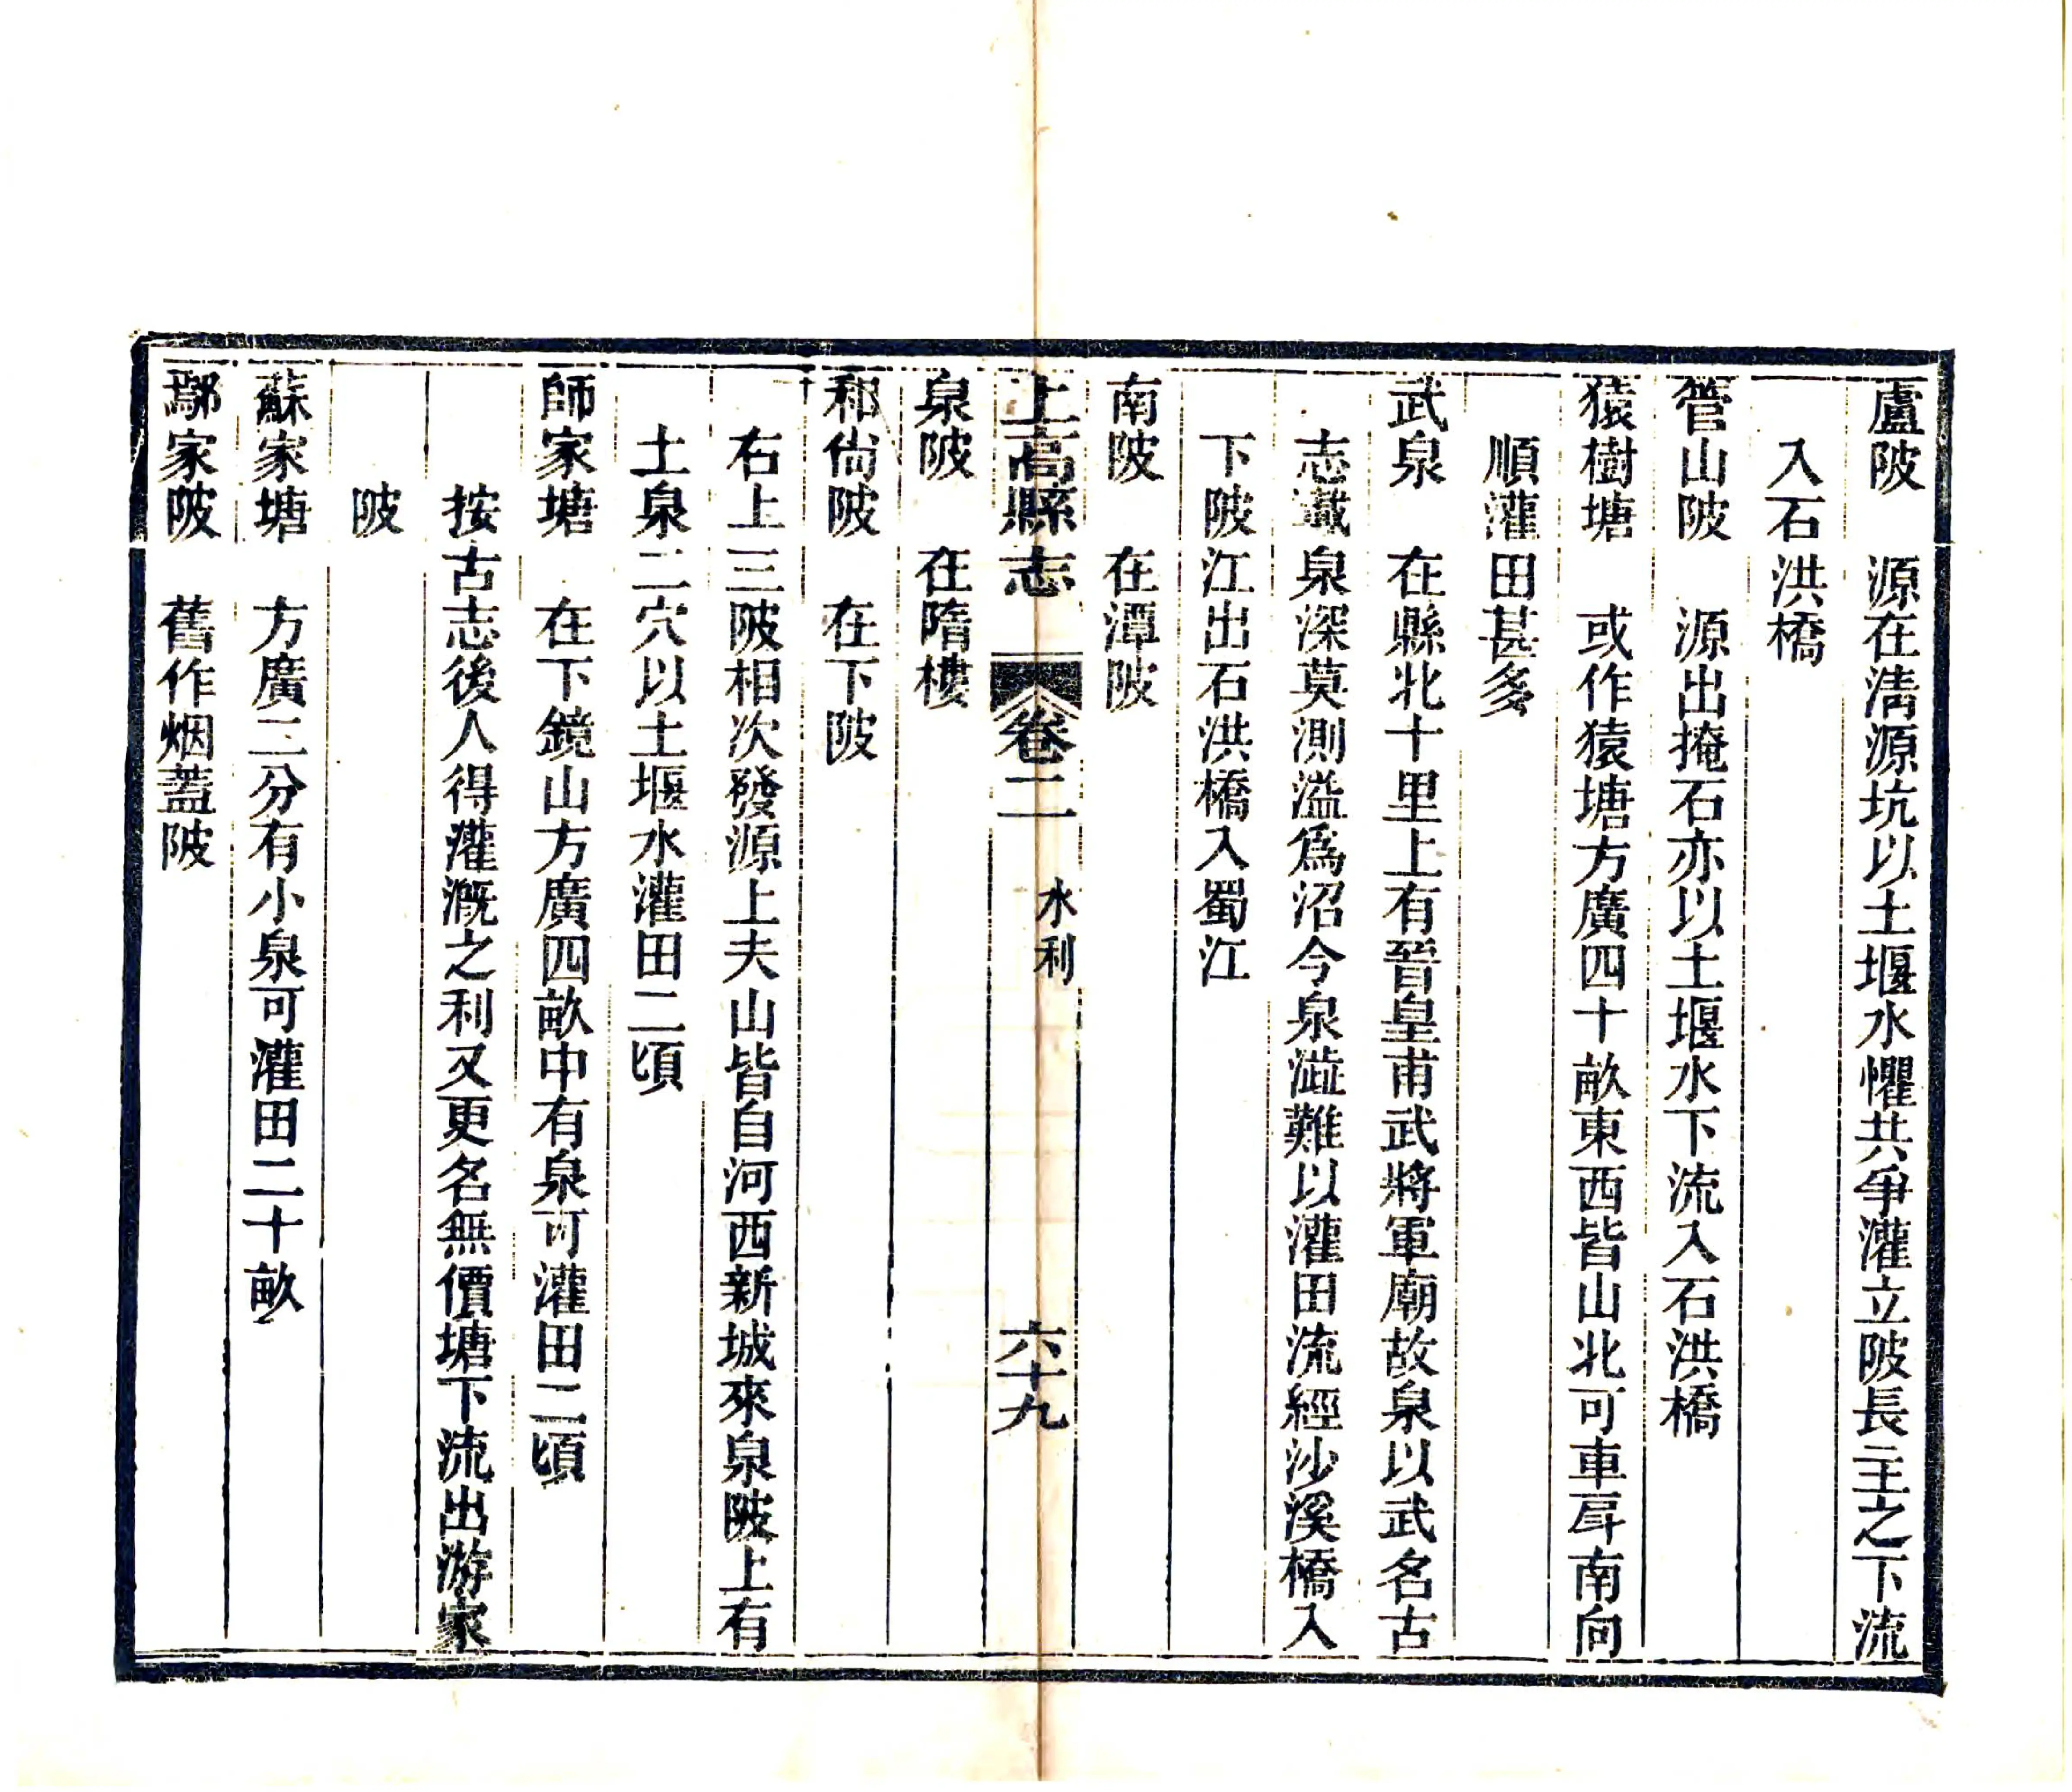 盧陂　源在清源坑以土堰水懼共爭灌立陂長主之下流
入石洪橋
管山陂　源出掩石亦以土堰水下流入石洪橋
猿樹塘　或作猿塘方廣四十畝東西皆山北可車戽南向
順灌田甚多
武泉　在縣北十里上有晉皇甫武將軍廟故泉以武名古
志載泉深莫測溢爲沼今泉澁難以灌田流經沙溪橋入
下陂江出石洪橋入蜀江
南陂　在潭陂
上高縣志　卷二　水利　六十九
泉陂　在隋樓
和尙陂　在下陂
右上三陂相次發源上夫山皆自河西新城來泉陂上有
土泉二穴以土堰水灌田二頃
師家塘　在下鏡山方廣四畝中有泉可灌田二頃
按古志後人得灌漑之利又更名無價塘下流出游家
陂
蘇家塘　方廣二分有小泉可灌田二十畝
鄢家陂　舊作烟蓋陂